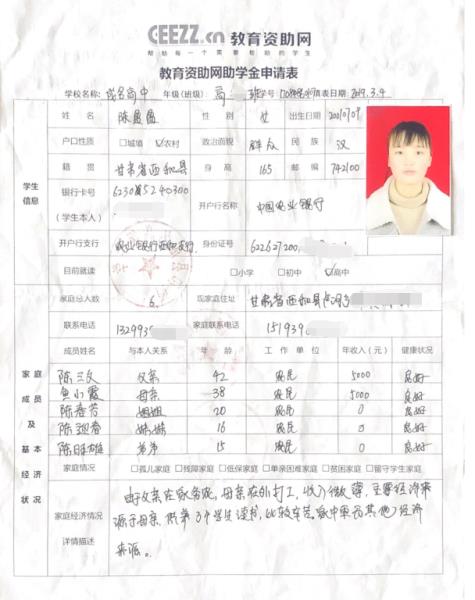 CEEZZ.cn 教育资助网
帮助每一个需要帮助的学生
教育资助网助学金申请表
学校名称: 成名高中 年级(班级) 高 班 学号: 填表日期: 2019.3.4
姓名 陈盈盈 性别 女 出生日期
户口性质 □城镇 ☑农村 政治面貌 群众 民族 汉
籍贯 甘肃省西和县 身高 165 邮编 742100
学生信息
银行卡号
(学生本人)
开户行名称 中国农业银行
开户行支行 农业银行西和支行 身份证号 622627200
目前就读 □小学 □初中 ☑高中
家庭总人数 6 现家庭住址 甘肃省西和县
联系电话 132993 家庭联系电话 151939
成员姓名 与本人关系 年龄 工作单位 年收入(元) 健康状况
陈三文 父亲 42 农民 5000 良好
鱼小霞 母亲 38 农民 5000 良好
陈春芳 姐姐 20 农民 0 良好
陈迎春 妹妹 16 农民 0 良好
陈 雄 弟弟 15 农民 0 良好
家庭成员及基本经济状况
家庭情况 □孤儿家庭 □残障家庭 □低保家庭 □单亲困难家庭 □贫困家庭 □留守学生家庭
家庭经济情况
详情描述
由于父亲在家务农,母亲在外打工,收入微薄,主要经济来
源于母亲,供养3个学生读书,比较辛苦,家中无其他经济
来源。